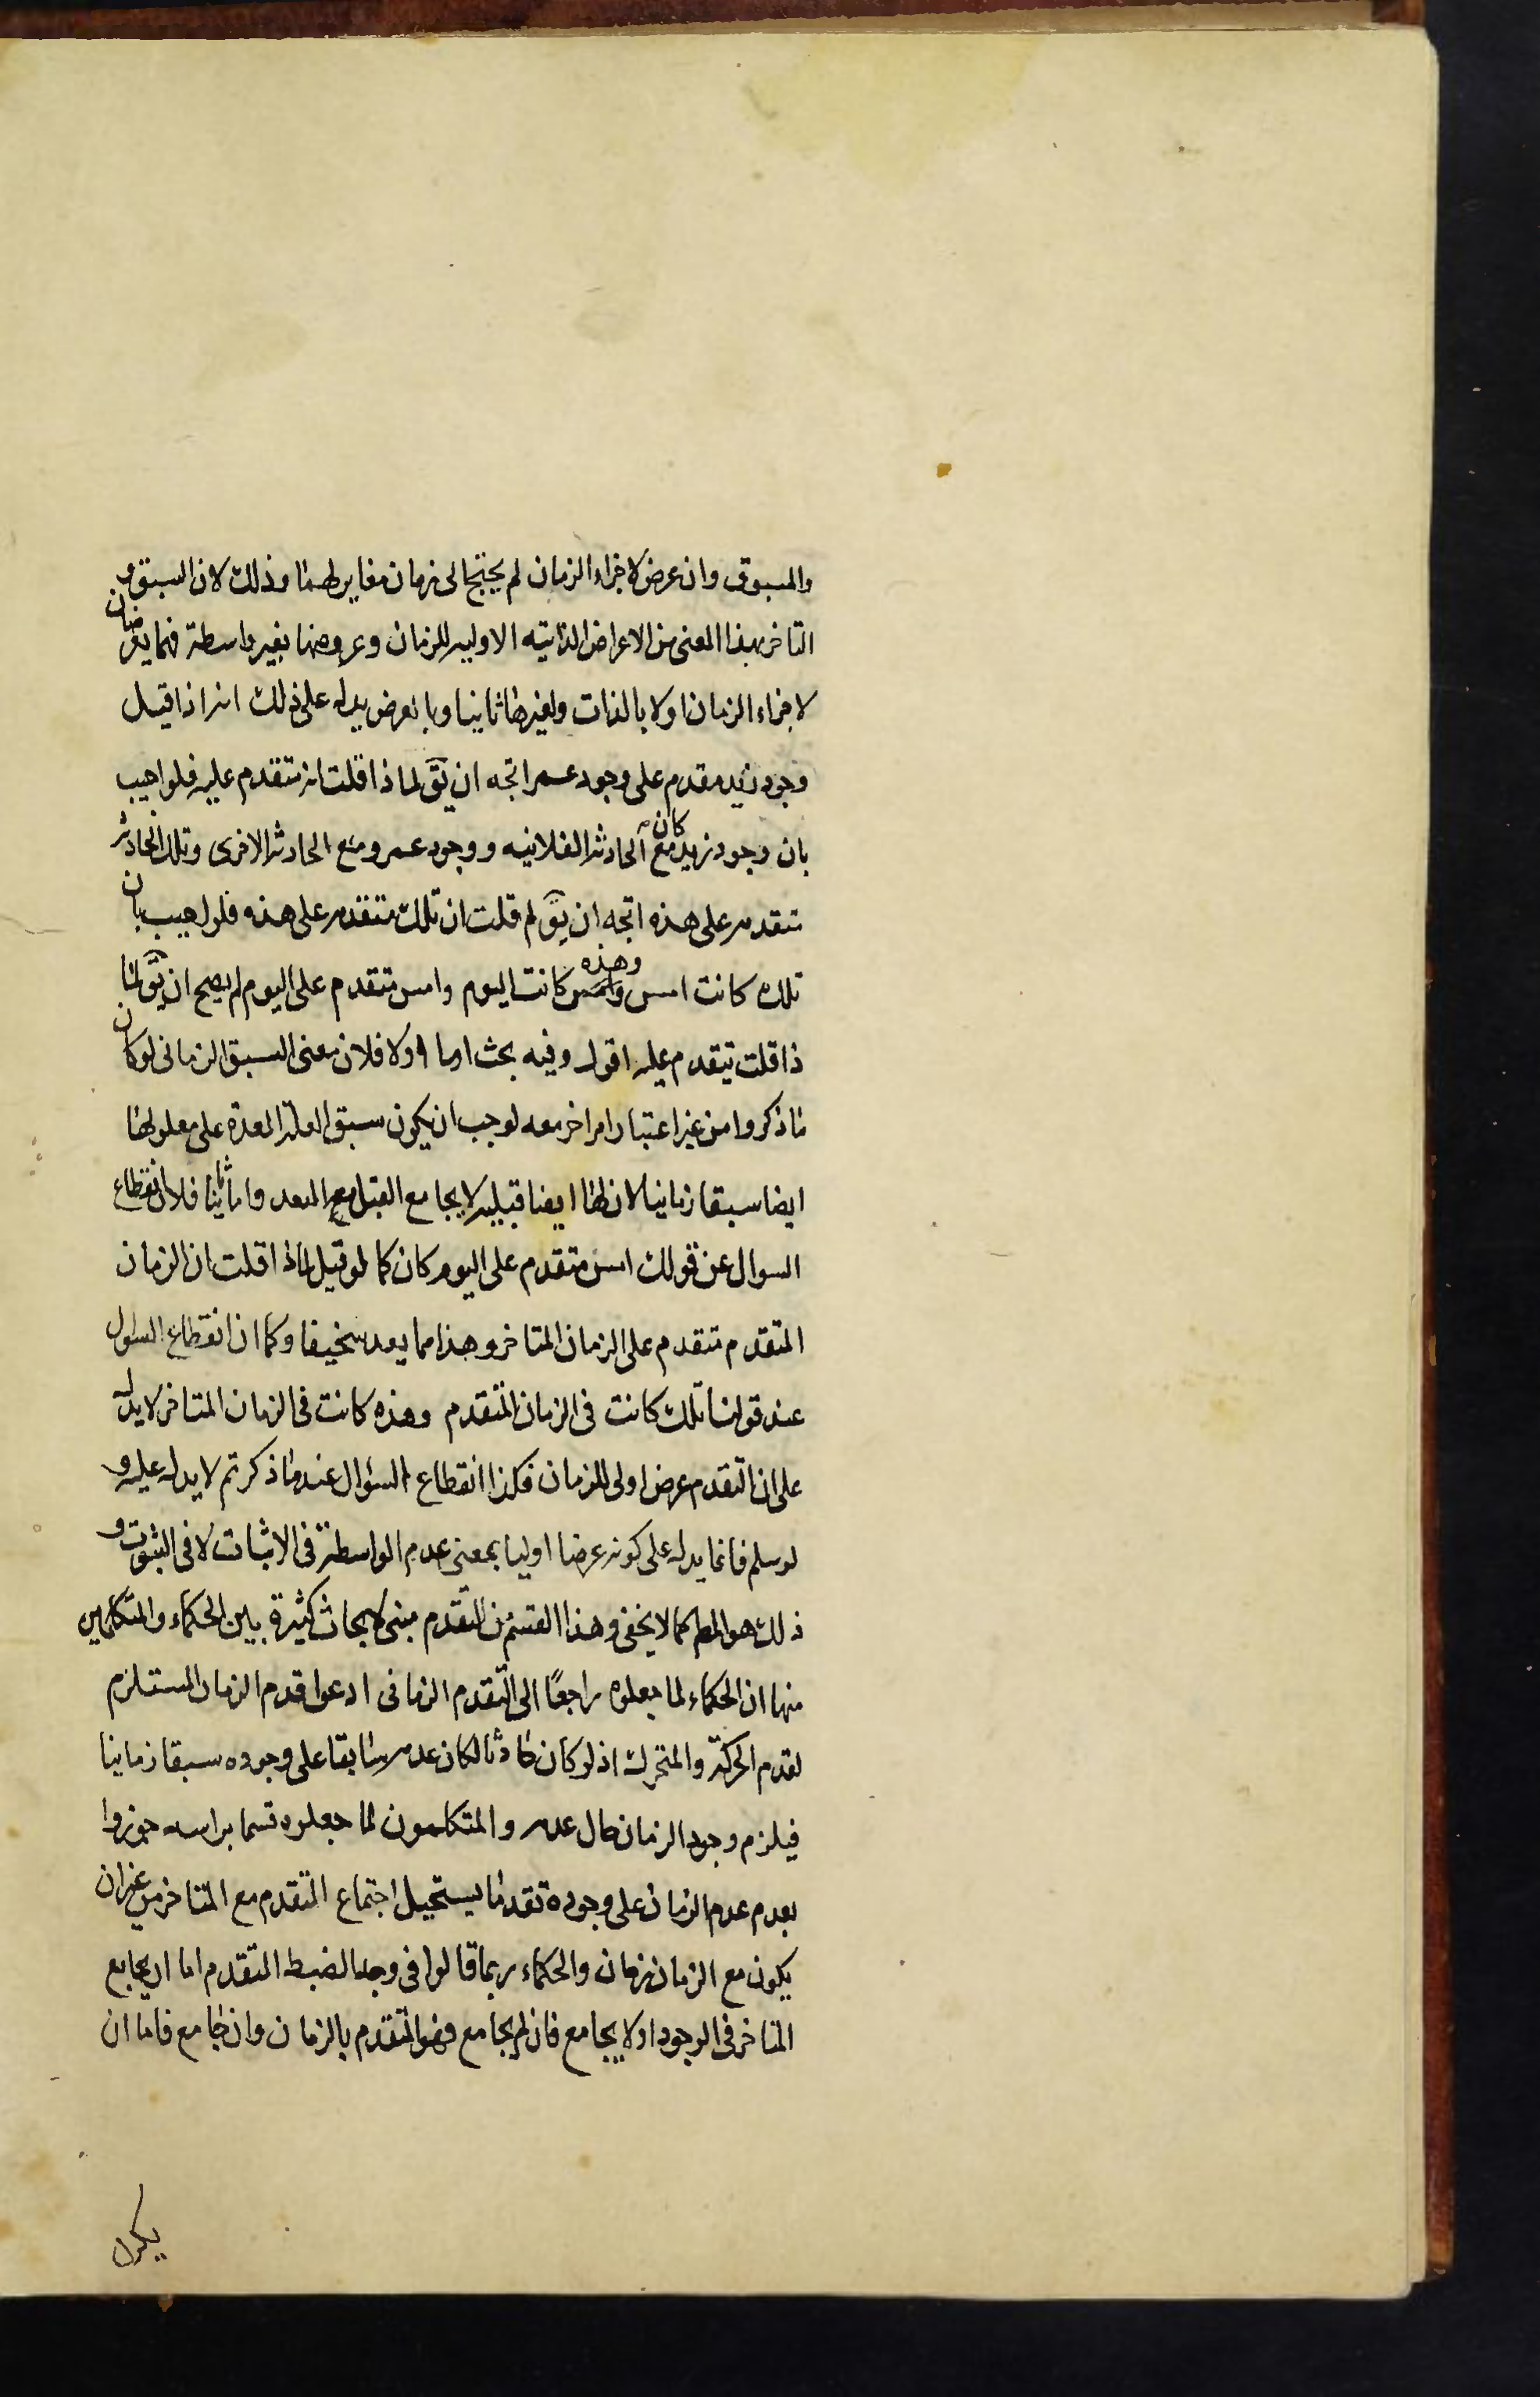 والمسبوق وان عرض لاجزاء الزمان لم يحتج الى زمان مغاير لهما وذلك لان السبق و
التاخر بهذا المعنى من الاعراض الذاتيه الاوليه للزمان وعروضها بغير واسطة فهما يعرضان
لاجزاء الزمان اولا بالذات ولغيرها ثانيا وبالعرض يدل على ذلك انه اذا قيل
وجود زيد مقدم على وجود عمر اتجه ان يقَ لماذا قلت انه متقدم عليه فلو اجيب
بان وجود زيد كان مع الحادثه الفلانيه ووجود عمرو مع الحادثه الاخرى وتلك الحادثه
متقدمه على هذه اتجه ان يقَ لم قلت ان تلك متقدمه على هذه فلو اجيب بان
تلك كانت امس وهذه كانت اليوم وامس متقدم على اليوم لم يصح ان يقَ لما
ذا قلت يتقدم عليه اقول وفيه بحث اما اولا فلان معنى السبق الزمانى لو كان
ما ذكروا من غير اعتبار امر اخر معه لوجب ان يكون سبق العلة المعدة على معلولها
ايضا سبقا زمانيا لان لها ايضا قبليه لا يجامع القبل مع البعد واما ثانيا فلان انقطاع
السوال عن قولك امس متقدم على اليوم كان كما لو قيل لماذا قلت ان الزمان
المتقدم متقدم على الزمان المتاخر وهذا مما يعد سخيفا وكما ان انقطاع السوال
عند قولنا تلك كانت فى الزمان المتقدم وهذه كانت فى الزمان المتاخر لا يدل
على ان التقدم عرض اولى للزمان فكذا انقطاع السؤال عند ما ذكرتم لا يدل عليه و
لو سلم فانما يدل على كونه عرضا اوليا بمعنى عدم الواسطة فى الاثبات لا فى الثبوت و
ذلك هو المط كما لا يخفى وهذا القسم من التقدم مبنى لابحاث كثيرة بين الحكماء والمتكلمين
منها ان الحكماء لما جعلوه راجعًا الى التقدم الزمانى ادعوا قدم الزمان المستلزم
لقدم الحركة والمتحرك اذ لو كان حادثا لكان عدمه سابقا على وجوده سبقا زمانيا
فيلزم وجود الزمان حال عدمه والمتكلمون لما جعلوه قسما براسه جوزوا
بعدم عدم الزمان على وجوده تقدما يستحيل اجتماع المتقدم مع المتاخر من غير ان
يكون مع الزمان زمان والحكماء ربما قالوا فى وجه الضبط المتقدم اما ان يجامع
المتاخر فى الوجود او لا يجامع فان لم يجامع فهو المتقدم بالزمان وان جامع فاما ان